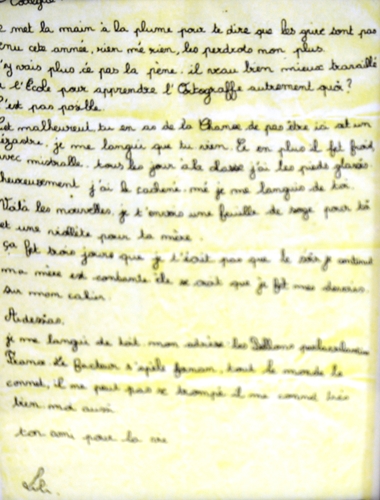 Collègue
met la main à la plume pour te dire que les grive sont pas
enu cete année, rien mé rien, les perdrots non plus.
'y vais plus, ce pas la pène. il veau bien mieux travaillé
à l'École pour apprendre l'Ortograffe autrement quoi?
C'est pas posible.
malheureut, tu en as de la Chance de pas être ici cet un
désastre. je me langui que tu vien. Et en plus il fet fruid,
avec mistralle. tous les jour à la classe j'ai les pieds glassés.
heureusement j'ai le cachene. mé je me languis de toi.
Voilà les nouvelles. je t'envois une feuille de soge pour toi
et une violète pour ta mère.
ça fet trois jours que je t'écrit pas que le soir je continu
ma mère est contente éle se croit que je fet mes devoirs.
sur mon cahier.
Adessias.
je me langui de toit. mon adrèse les Bellons
France. Le facteur s'apèle fernan, tout le monde le
connet, il ne peut pas se trompé. il me connet très
bien. moi aussi
ton ami pour la vie
Lili.